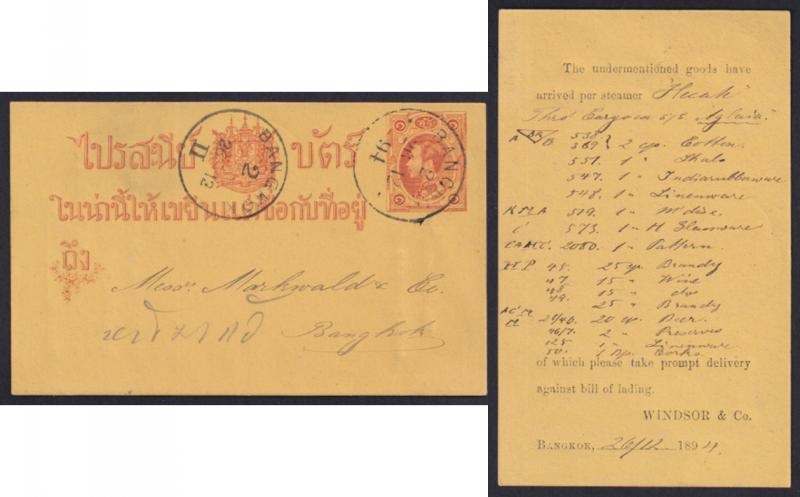 ไปรสนียบัตร์
ในน่านี้ให้เขยีนแต่ชื่อกับที่อยู่
ถึง
BANGKOK
2
12
II
BANGK
94
Messrs. Markwald & Co.
Bangkok
The undermentioned goods have
arrived per steamer "Hecate"
Thro Cargo ex S/S Aglaia.
538
A 569 2 cs. Cotton
551. 1 " Shals
547. 1 " Indiarubberware
548. 1 " Linenware
519. 1 "
C 573. 1 " H Glassware
2080. 1 " Pattern
H P 45. 25 cs. Brandy
47. 15 " Wine
48. 15 " do
49. 25 " Brandy
21/40. 20 cs. Beer.
46/7. 2 " Preserves
125 1 " Linenware
50. 1 Corks
of which please take prompt delivery
against bill of lading.
WINDSOR & Co.
BANGKOK, 26/12 1894.